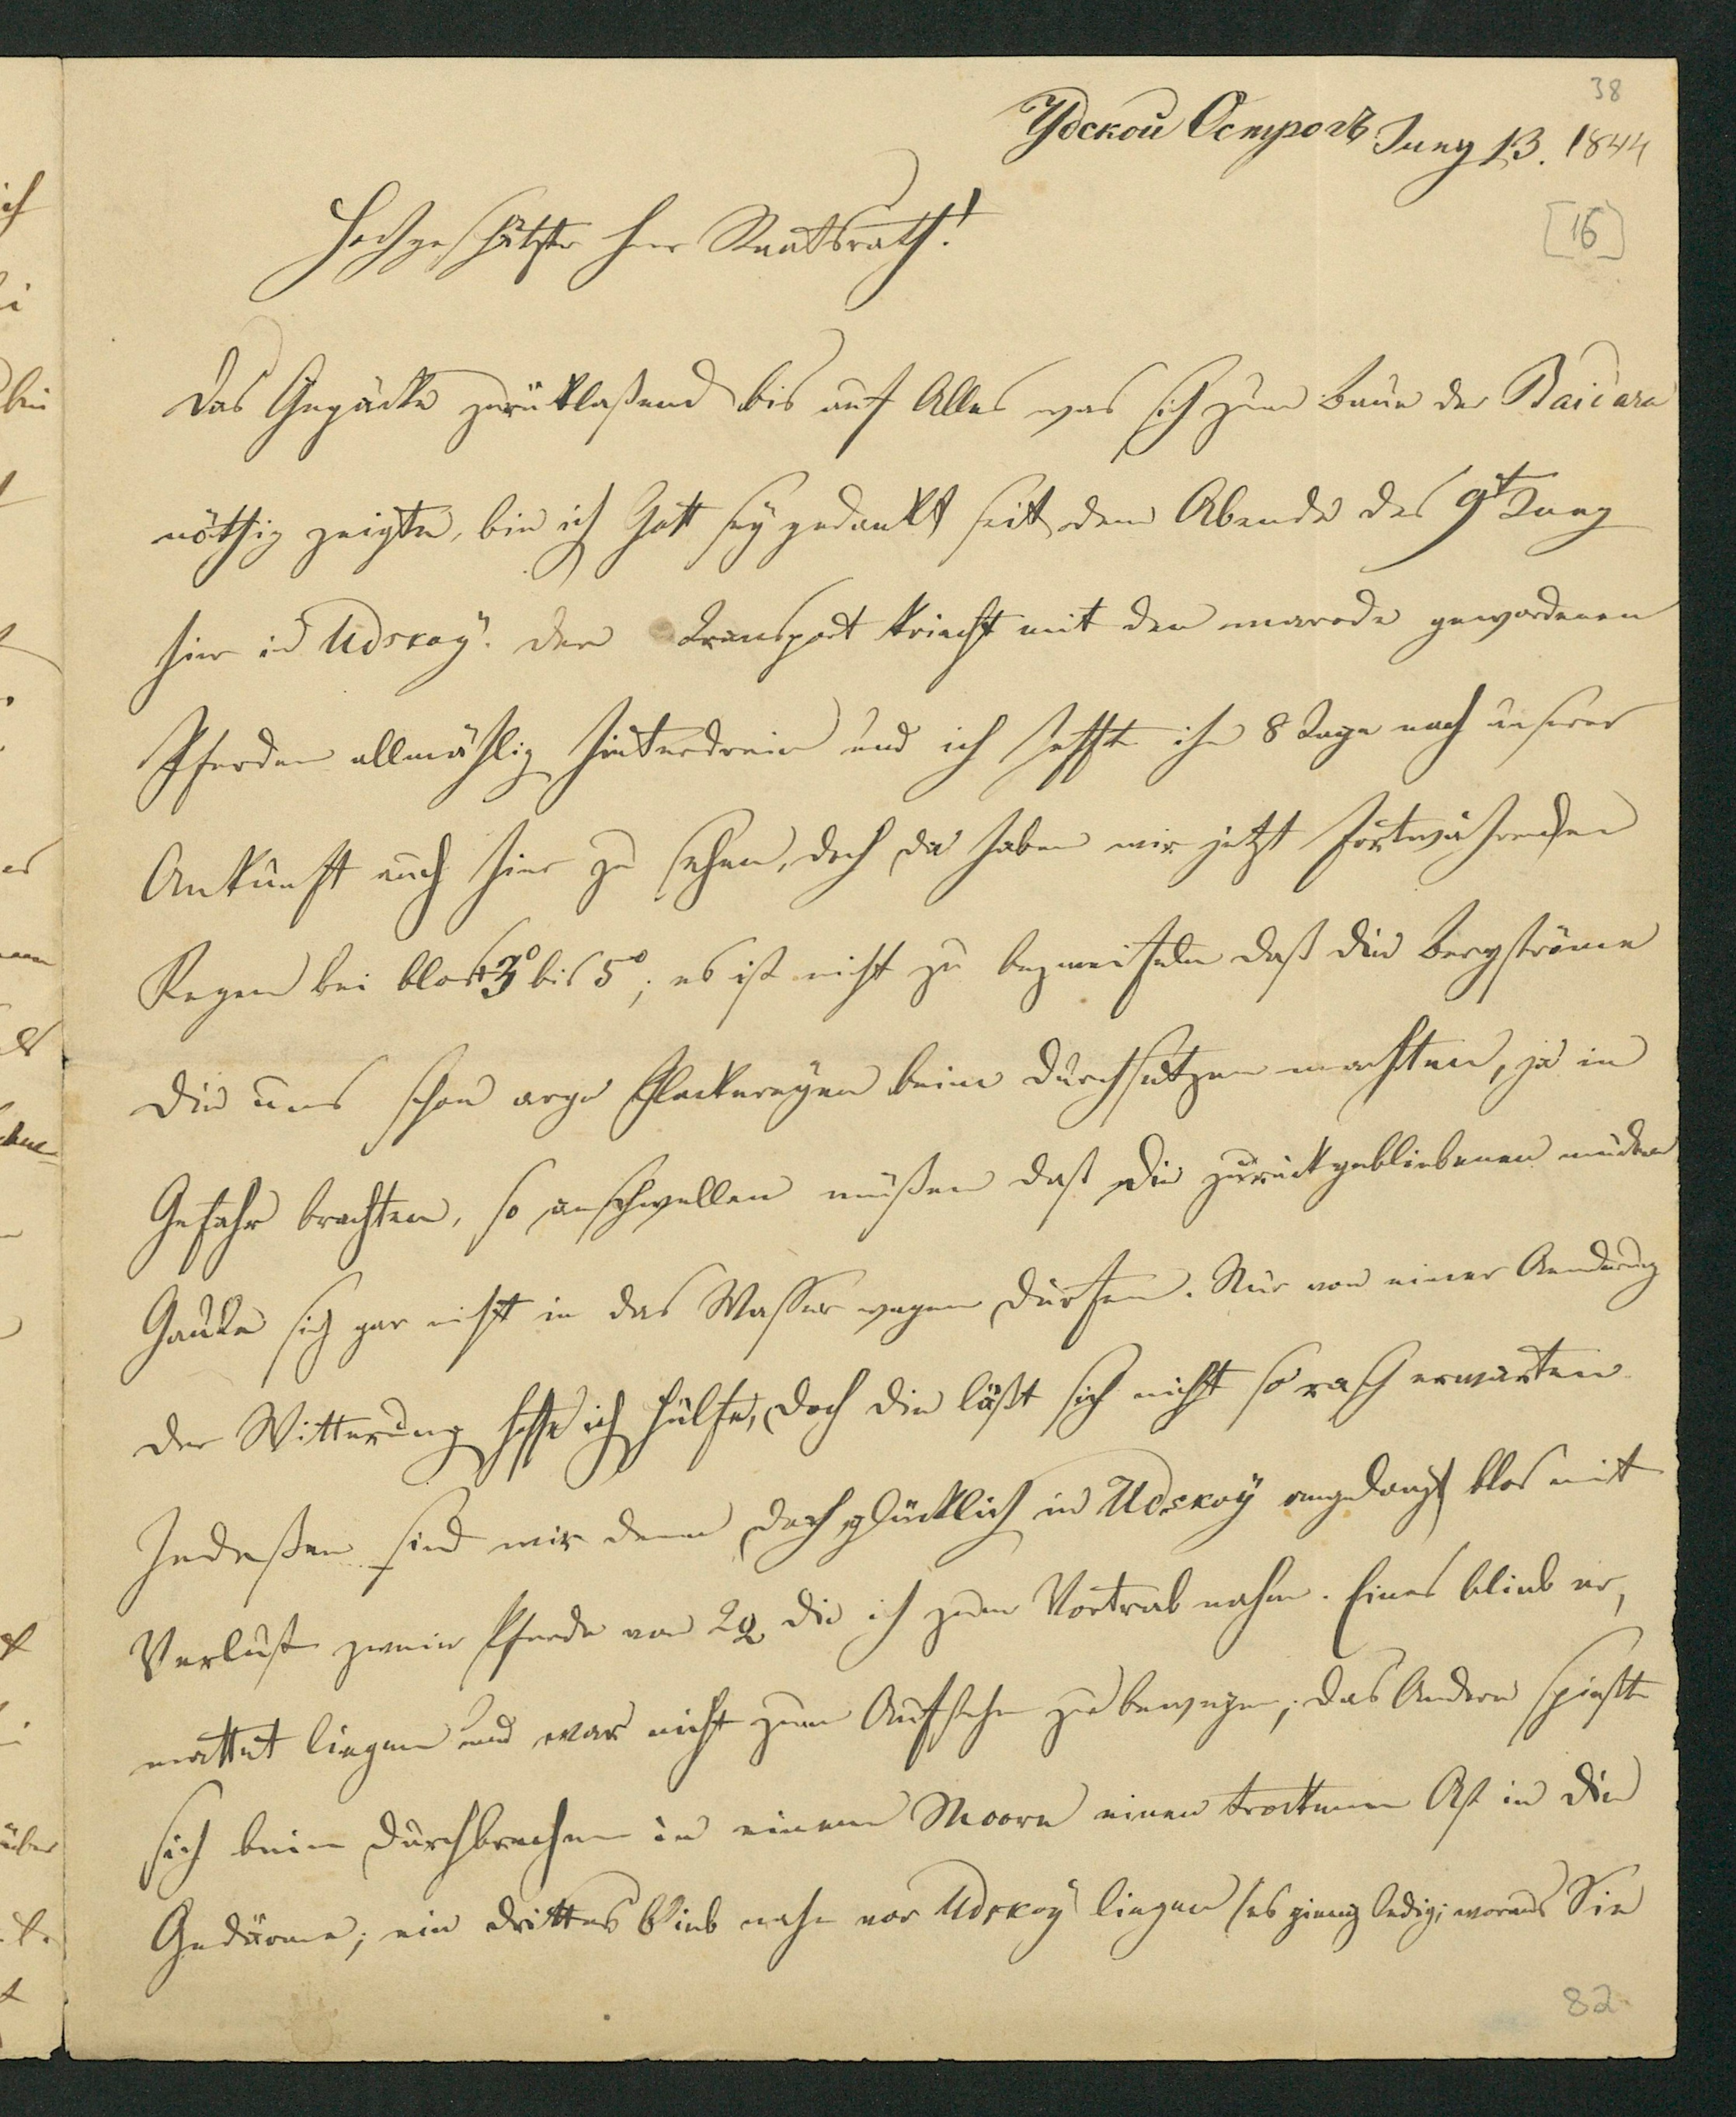 38
Удской Острогъ Juny 13. 1844
[16]
Hochgeschätzter Herr Staatsrath!
Das Gepäcke zurüklaßend bis auf Alles was sich zum Baue der Baidara
nöthig zeigte, bin ich Gott sey gedankt seit dem Abende des 9t Juny
hier in Udskoy. Der Transport kriecht mit den marode gewordenen
Pferden allmählig hinterdrein und ich hoffte ihn 8 Tage nach unserer
Ankunft auch hier zu sehen, doch da haben wir jetzt fortwährenden
Regen bei blos +3° bis 5°; es ist nicht zu bezweifeln daß die Bergströme
die uns schon arge Plackereyen beim Durchsetzen machten, ja in
Gefahr brachten, so anschwellen müßen daß die zurückgebliebenen müden
Gäule sich gar nicht in das Wasser wagen dürfen. Nur von einer Aenderung
der Witterung hoffe ich Hülfe, doch die läßt sich nicht so rasch erwarten.
Indeßen sind wir denn doch glücklich in Udskoy angelangt blos mit
Verlust zweier Pferde von 22 die ich zum Vortrab nahm. Eines blieb er,
mattet liegen und war nicht zum Aufstehn zu bewegen; das Andere spießte
sich beim Durchbrechen in einem Moore einen trockenen Ast in die
Gedärme; ein drittes blieb nahe vor Udskoy liegen (es gieng ledig; woraus Sie
82